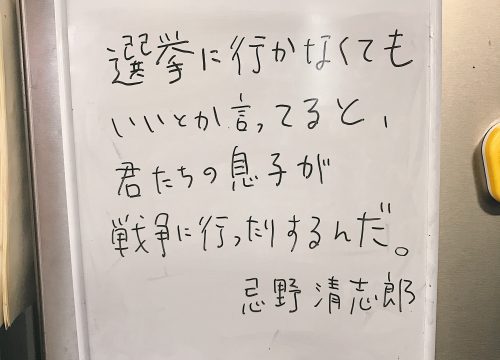 選挙に行かなくても
いいとか言ってると、
君たちの息子が
戦争に行ったりするんだ。
忌野清志郎